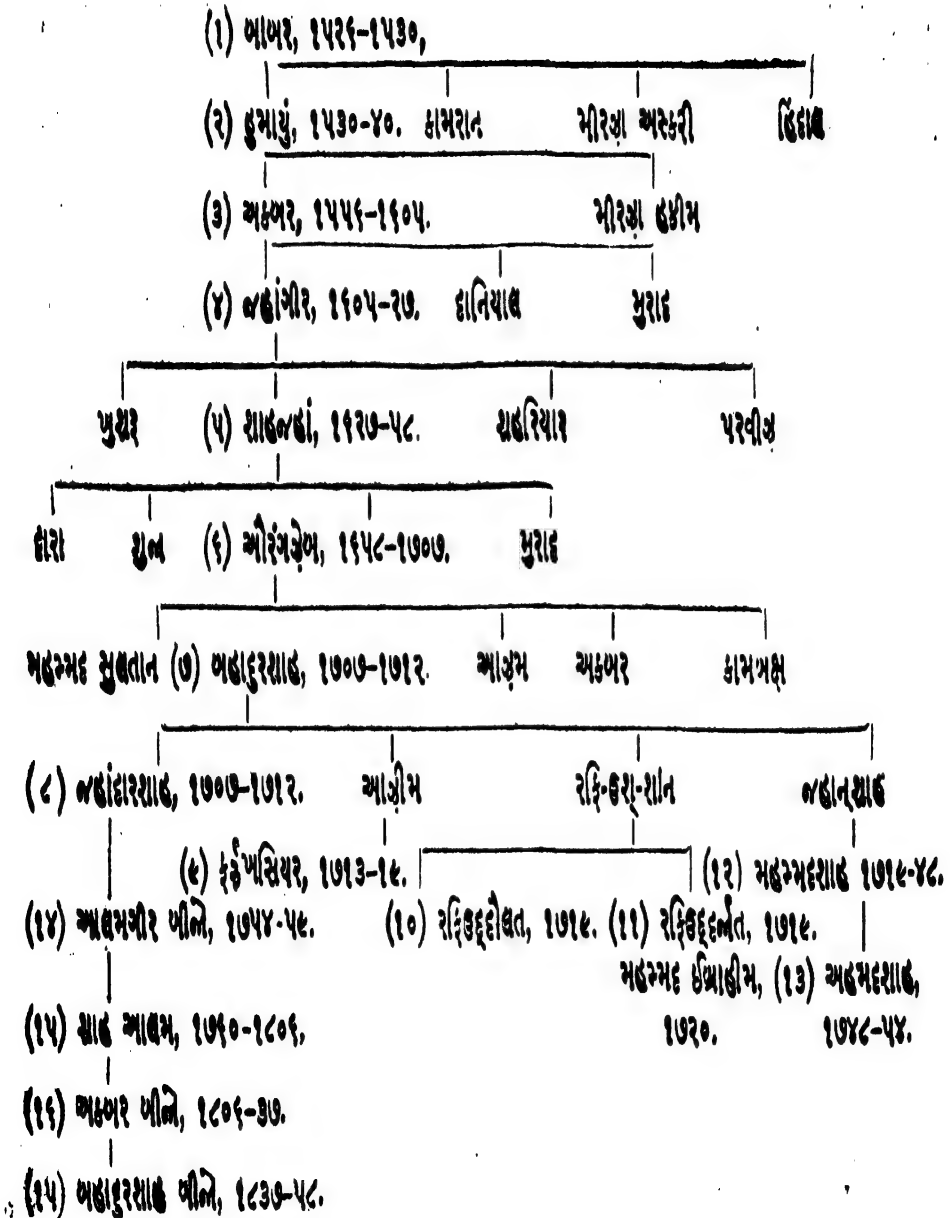 (૧) બાબર, ૧૫૨૬-૧૫૩૦,
(૨) હુમાયું, ૧૫૩૦-૪૦. કામરાન મીરઝા અસ્કરી હિંદાલ
(૩) અકબર, ૧૫૫૬-૧૬૦૫. મીરઝા હકીમ
(૪) જહાંગીર, ૧૬૦૫-૨૭. દાનિયાલ મુરાદ
ખુશરૂ (૫) શાહજહાં, ૧૬૨૭-૫૮. શહરિયાર પરવીઝ
દારા શુજા (૬) ઔરંગઝેબ, ૧૬૫૮-૧૭૦૭. મુરાદ
મહમ્મદ સુલતાન (૭) બહાદુરશાહ, ૧૭૦૭-૧૭૧૨. આઝમ અકબર કામબક્ષ
(૮) જહાંદારશાહ, ૧૭૦૭-૧૭૧૨. આઝીમ રફિ-ઉશ્-શાન જહાનશાહ
(૯) ફર્રુખસિયર, ૧૭૧૩-૧૯. (૧૨) મહમ્મદશાહ ૧૭૧૯-૪૮.
(૧૪) આલમગીર બીજો, ૧૭૫૪-૫૯. (૧૦) રફિઉદ્દૌલત, ૧૭૧૯. (૧૧) રફિઉદ્દર્જત, ૧૭૧૯.
મહમ્મદ ઈબ્રાહીમ, (૧૩) અહમદશાહ,
(૧૫) શાહ આલમ, ૧૭૬૦-૧૮૦૬, ૧૭૨૦. ૧૭૪૮-૫૪.
(૧૬) અકબર બીજો, ૧૮૦૬-૩૭.
(૧૫) બહાદુરશાહ બીજો, ૧૮૩૭-૫૮.